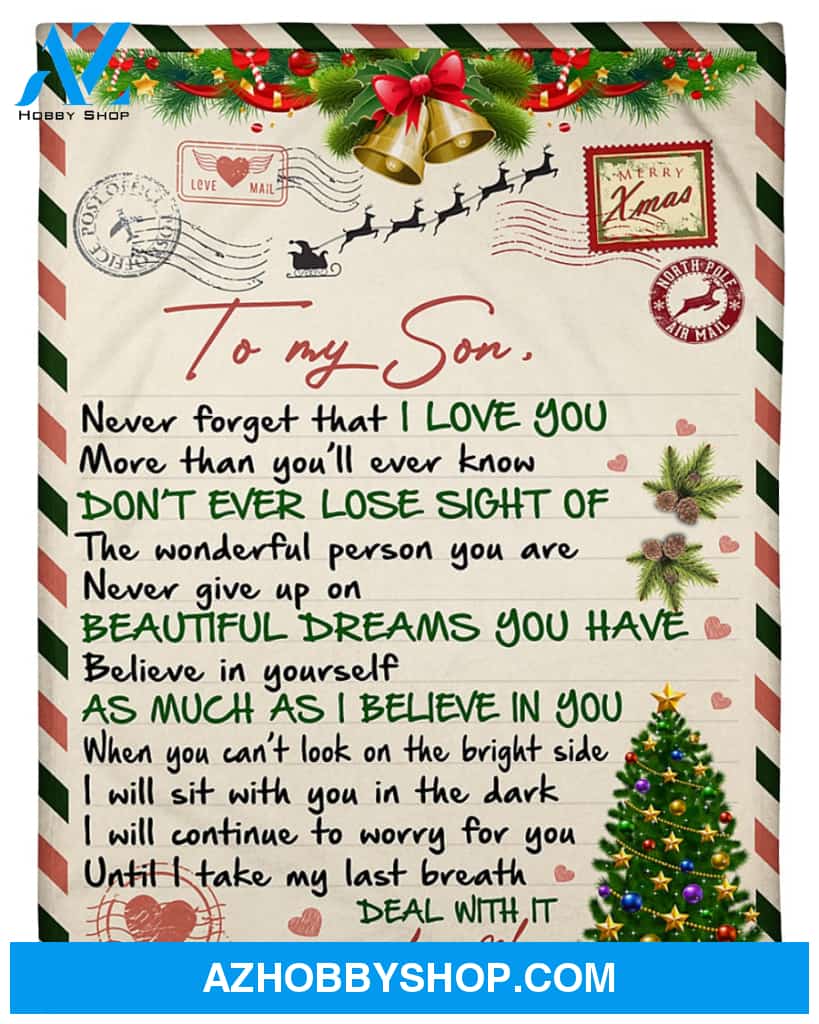 AZ
HOBBY SHOP
LOVE MAIL
POST OFFICE POST OFFICE
MERRY
Xmas
NORTH POLE
AIR MAIL
To my Son,
Never forget that I LOVE YOU
More than you'll ever know
DON'T EVER LOSE SIGHT OF
The wonderful person you are
Never give up on
BEAUTIFUL DREAMS YOU HAVE
Believe in yourself
AS MUCH AS I BELIEVE IN YOU
When you can't look on the bright side
I will sit with you in the dark
I will continue to worry for you
Until I take my last breath
DEAL WITH IT
AZHOBBYSHOP.COM